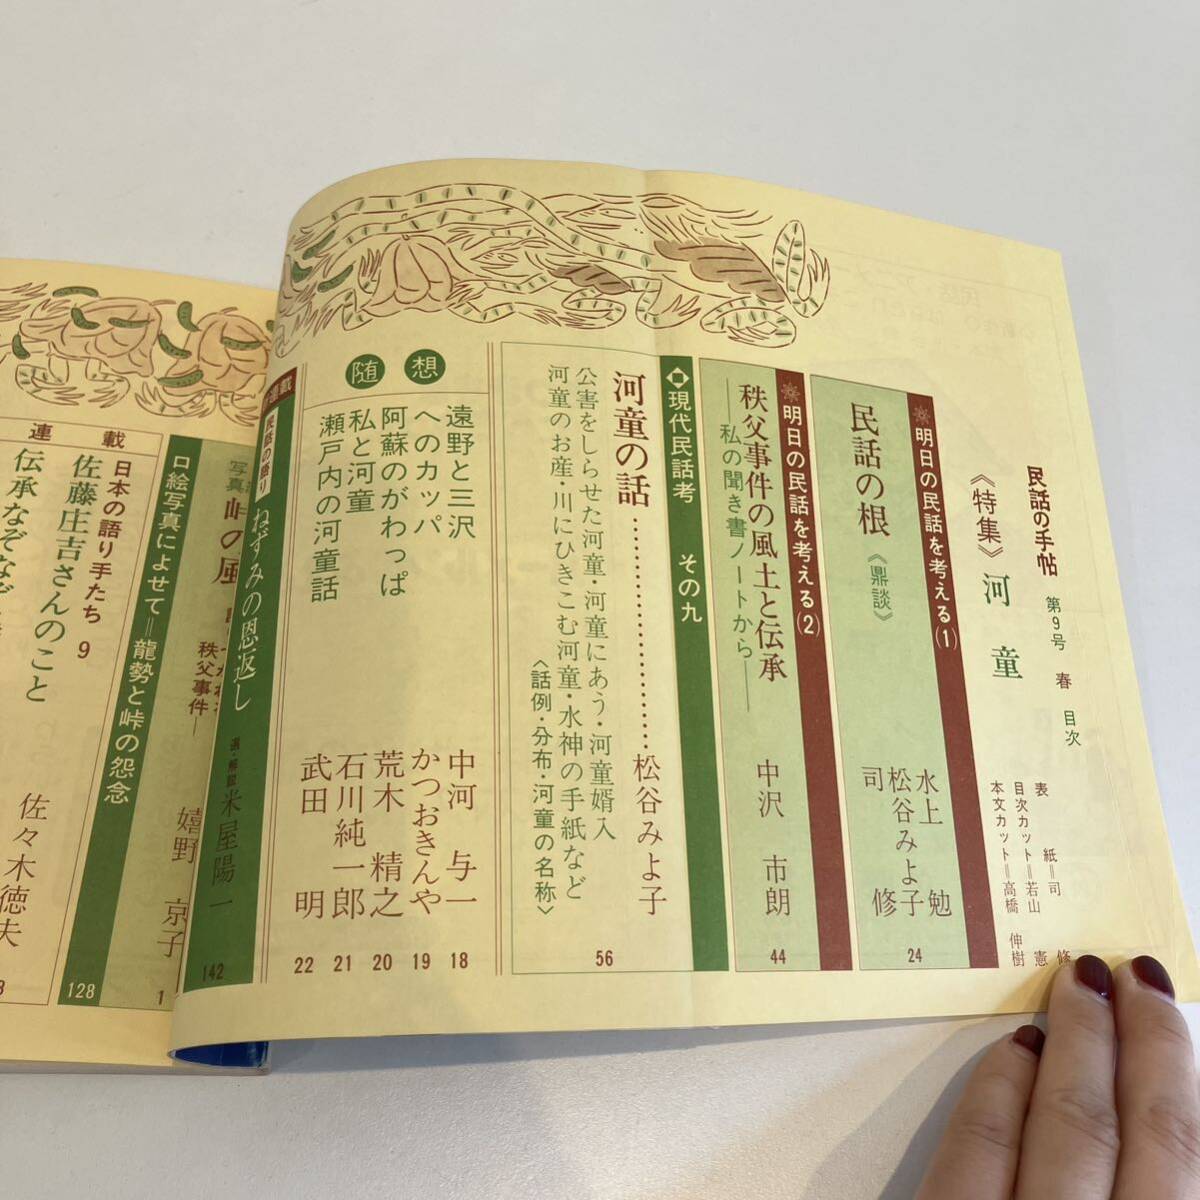 民話の手帖 第9号 春 目次
《特集》河童
表紙＝司 修
目次カット＝若山 憲
本文カット＝高橋 伸樹
明日の民話を考える(1)
民話の根《鼎談》
水上 勉
松谷みよ子
司 修
24
明日の民話を考える(2)
秩父事件の風土と伝承
―私の聞き書ノートから―
中沢 市朗
44
現代民話考 その九
河童の話…………松谷みよ子
公害をしらせた河童・河童にあう・河童婿入
河童のお産・川にひきこむ河童・水神の手紙など
〈話例・分布・河童の名称〉
56
随想
遠野と三沢 中河 与一 18
へのカッパ かつおきんや 19
阿蘇のがわっぱ 荒木 精之 20
私と河童 石川純一郎 21
瀬戸内の河童話 武田 明 22
民話の語り
ねずみの恩返し 選・解説 米屋陽一 142
峠の風
秩父事件
口絵写真によせて＝龍勢と峠の怨念
嬉野 京子
128
連載
日本の語り手たち 9
佐藤庄吉さんのこと
佐々木徳夫
伝承なぞなぞ